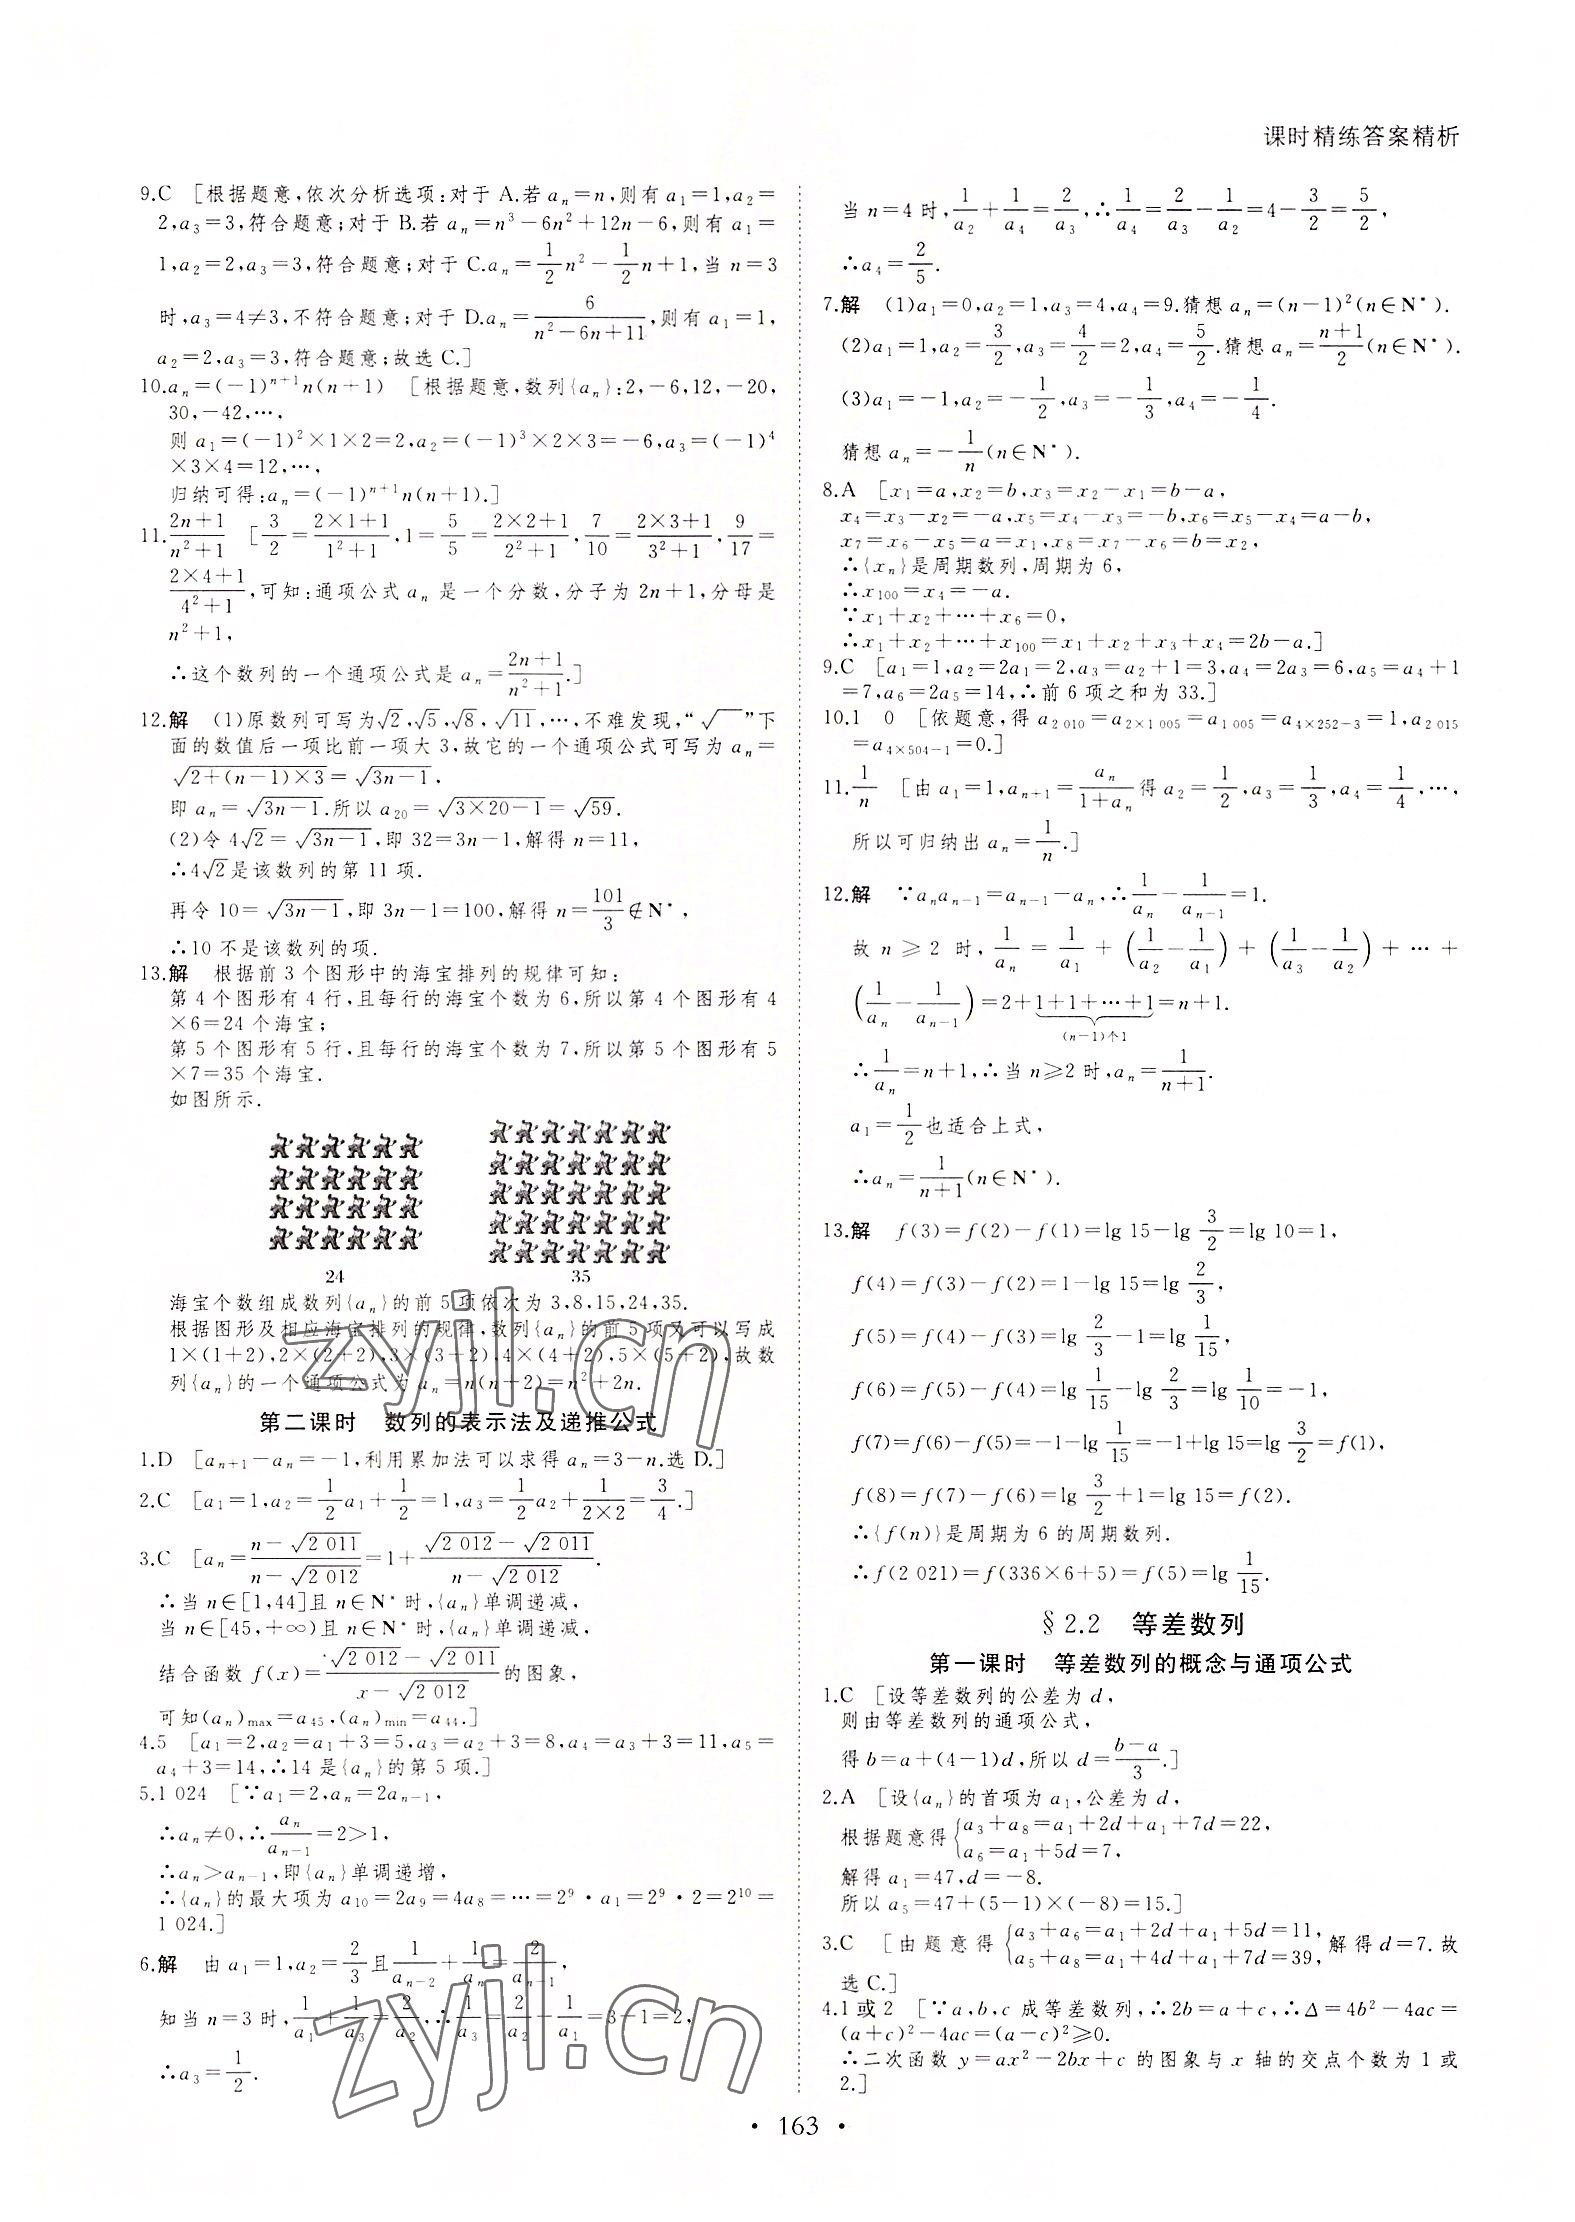 课时精练答案精析
9.C [根据题意,依次分析选项:对于 A.若 aₙ=n,则有 a₁=1,a₂=
2,a₃=3,符合题意;对于 B.若 aₙ=n³-6n²+12n-6,则有 a₁=
1,a₂=2,a₃=3,符合题意;对于 C.aₙ=1/2n²-1/2n+1,当 n=3
时,a₃=4≠3,不符合题意;对于 D.aₙ=6/(n²-6n+11),则有 a₁=1,
a₂=2,a₃=3,符合题意;故选 C.]
10.aₙ=(-1)ⁿ⁺¹n(n+1) [根据题意,数列{aₙ}:2,-6,12,-20,
30,-42,…,
则 a₁=(-1)²×1×2=2,a₂=(-1)³×2×3=-6,a₃=(-1)⁴
×3×4=12,…,
归纳可得:aₙ=(-1)ⁿ⁺¹n(n+1).]
11.(2n+1)/(n²+1) [3/2=(2×1+1)/(1²+1),1=5/5=(2×2+1)/(2²+1),7/10=(2×3+1)/(3²+1),9/17=
(2×4+1)/(4²+1),可知:通项公式 aₙ 是一个分数,分子为 2n+1,分母是
n²+1,
∴这个数列的一个通项公式是 aₙ=(2n+1)/(n²+1).]
12.解 (1)原数列可写为√2,√5,√8,√11,…,不难发现,“√ ”下
面的数值后一项比前一项大 3,故它的一个通项公式可写为 aₙ=
√(2+(n-1)×3)=√(3n-1),
即 aₙ=√(3n-1).所以 a₂₀=√(3×20-1)=√59.
(2)令 4√2=√(3n-1),即 32=3n-1,解得 n=11,
∴4√2是该数列的第 11 项.
再令 10=√(3n-1),即 3n-1=100,解得 n=101/3∉N*,
∴10 不是该数列的项.
13.解 根据前 3 个图形中的海宝排列的规律可知:
第 4 个图形有 4 行,且每行的海宝个数为 6,所以第 4 个图形有 4
×6=24 个海宝;
第 5 个图形有 5 行,且每行的海宝个数为 7,所以第 5 个图形有 5
×7=35 个海宝.
如图所示.
24 35
海宝个数组成数列{aₙ}的前 5 项依次为 3,8,15,24,35.
根据图形及相应海宝排列的规律,数列{aₙ}的前 5 项又可以写成
1×(1+2),2×(2+2),3×(3+2),4×(4+2),5×(5+2),故数
列{aₙ}的一个通项公式为 aₙ=n(n+2)=n²+2n.
第二课时 数列的表示法及递推公式
1.D [aₙ₊₁-aₙ=-1,利用累加法可以求得 aₙ=3-n.选 D.]
2.C [a₁=1,a₂=1/2a₁+1/2=1,a₃=1/2a₂+1/(2×2)=3/4.]
3.C [aₙ=(n-√2 011)/(n-√2 012)=1+(√2 012-√2 011)/(n-√2 012).
∴当 n∈[1,44]且 n∈N*时,{aₙ}单调递减,
当 n∈[45,+∞)且 n∈N*时,{aₙ}单调递减,
结合函数 f(x)=(√2 012-√2 011)/(x-√2 012)的图象,
可知(aₙ)max=a₄₅,(aₙ)min=a₄₄.]
4.5 [a₁=2,a₂=a₁+3=5,a₃=a₂+3=8,a₄=a₃+3=11,a₅=
a₄+3=14,∴14 是{aₙ}的第 5 项.]
5.1 024 [∵a₁=2,aₙ=2aₙ₋₁,
∴aₙ≠0,∴aₙ/aₙ₋₁=2>1,
∴aₙ>aₙ₋₁,即{aₙ}单调递增,
∴{aₙ}的最大项为 a₁₀=2a₉=4a₈=…=2⁹·a₁=2⁹·2=2¹⁰=
1 024.]
6.解 由 a₁=1,a₂=2/3且1/aₙ₋₂+1/aₙ=2/aₙ₋₁,
知当 n=3 时,1/a₁+1/a₃=2/a₂,∴1/a₃=2/a₂-1/a₁=3-1=2,
∴a₃=1/2.
当 n=4 时,1/a₂+1/a₄=2/a₃,∴1/a₄=2/a₃-1/a₂=4-3/2=5/2,
∴a₄=2/5.
7.解 (1)a₁=0,a₂=1,a₃=4,a₄=9.猜想 aₙ=(n-1)²(n∈N*).
(2)a₁=1,a₂=3/2,a₃=4/2=2,a₄=5/2.猜想 aₙ=(n+1)/2(n∈N*).
(3)a₁=-1,a₂=-1/2,a₃=-1/3,a₄=-1/4.
猜想 aₙ=-1/n(n∈N*).
8.A [x₁=a,x₂=b,x₃=x₂-x₁=b-a,
x₄=x₃-x₂=-a,x₅=x₄-x₃=-b,x₆=x₅-x₄=a-b,
x₇=x₆-x₅=a=x₁,x₈=x₇-x₆=b=x₂,
∴{xₙ}是周期数列,周期为 6,
∴x₁₀₀=x₄=-a.
∵x₁+x₂+…+x₆=0,
∴x₁+x₂+…+x₁₀₀=x₁+x₂+x₃+x₄=2b-a.]
9.C [a₁=1,a₂=2a₁=2,a₃=a₂+1=3,a₄=2a₃=6,a₅=a₄+1
=7,a₆=2a₅=14,∴前 6 项之和为 33.]
10.1 0 [依题意,得 a₂ ₀₁₀=a₂×₁ ₀₀₅=a₁ ₀₀₅=a₄×₂₅₂₋₃=1,a₂ ₀₁₅
=a₄×₅₀₄₋₁=0.]
11.1/n [由 a₁=1,aₙ₊₁=aₙ/(1+aₙ)得 a₂=1/2,a₃=1/3,a₄=1/4,…,
所以可归纳出 aₙ=1/n.]
12.解 ∵aₙaₙ₋₁=aₙ₋₁-aₙ,∴1/aₙ-1/aₙ₋₁=1.
故 n≥2 时,1/aₙ=1/a₁+(1/a₂-1/a₁)+(1/a₃-1/a₂)+…+
(1/aₙ-1/aₙ₋₁)=2+1+1+…+1=n+1.
(n-1)个1
∴1/aₙ=n+1,∴当 n≥2 时,aₙ=1/(n+1).
a₁=1/2也适合上式,
∴aₙ=1/(n+1)(n∈N*).
13.解 f(3)=f(2)-f(1)=lg 15-lg 3/2=lg 10=1,
f(4)=f(3)-f(2)=1-lg 15=lg 2/3,
f(5)=f(4)-f(3)=lg 2/3-1=lg 1/15,
f(6)=f(5)-f(4)=lg 1/15-lg 2/3=lg 1/10=-1,
f(7)=f(6)-f(5)=-1-lg 1/15=-1+lg 15=lg 3/2=f(1),
f(8)=f(7)-f(6)=lg 3/2+1=lg 15=f(2).
∴{f(n)}是周期为 6 的周期数列.
∴f(2 021)=f(336×6+5)=f(5)=lg 1/15.
§2.2 等差数列
第一课时 等差数列的概念与通项公式
1.C [设等差数列的公差为 d,
则由等差数列的通项公式,
得 b=a+(4-1)d,所以 d=(b-a)/3.]
2.A [设{aₙ}的首项为 a₁,公差为 d,
根据题意得{a₃+a₈=a₁+2d+a₁+7d=22,
a₆=a₁+5d=7,
解得 a₁=47,d=-8.
所以 a₅=47+(5-1)×(-8)=15.]
3.C [由题意得{a₃+a₆=a₁+2d+a₁+5d=11,
a₅+a₈=a₁+4d+a₁+7d=39,解得 d=7.故
选 C.]
4.1 或 2 [∵a,b,c 成等差数列,∴2b=a+c,∴Δ=4b²-4ac=
(a+c)²-4ac=(a-c)²≥0.
∴二次函数 y=ax²-2bx+c 的图象与 x 轴的交点个数为 1 或
2.]
zyjl.cn
zyjl.cn
· 163 ·